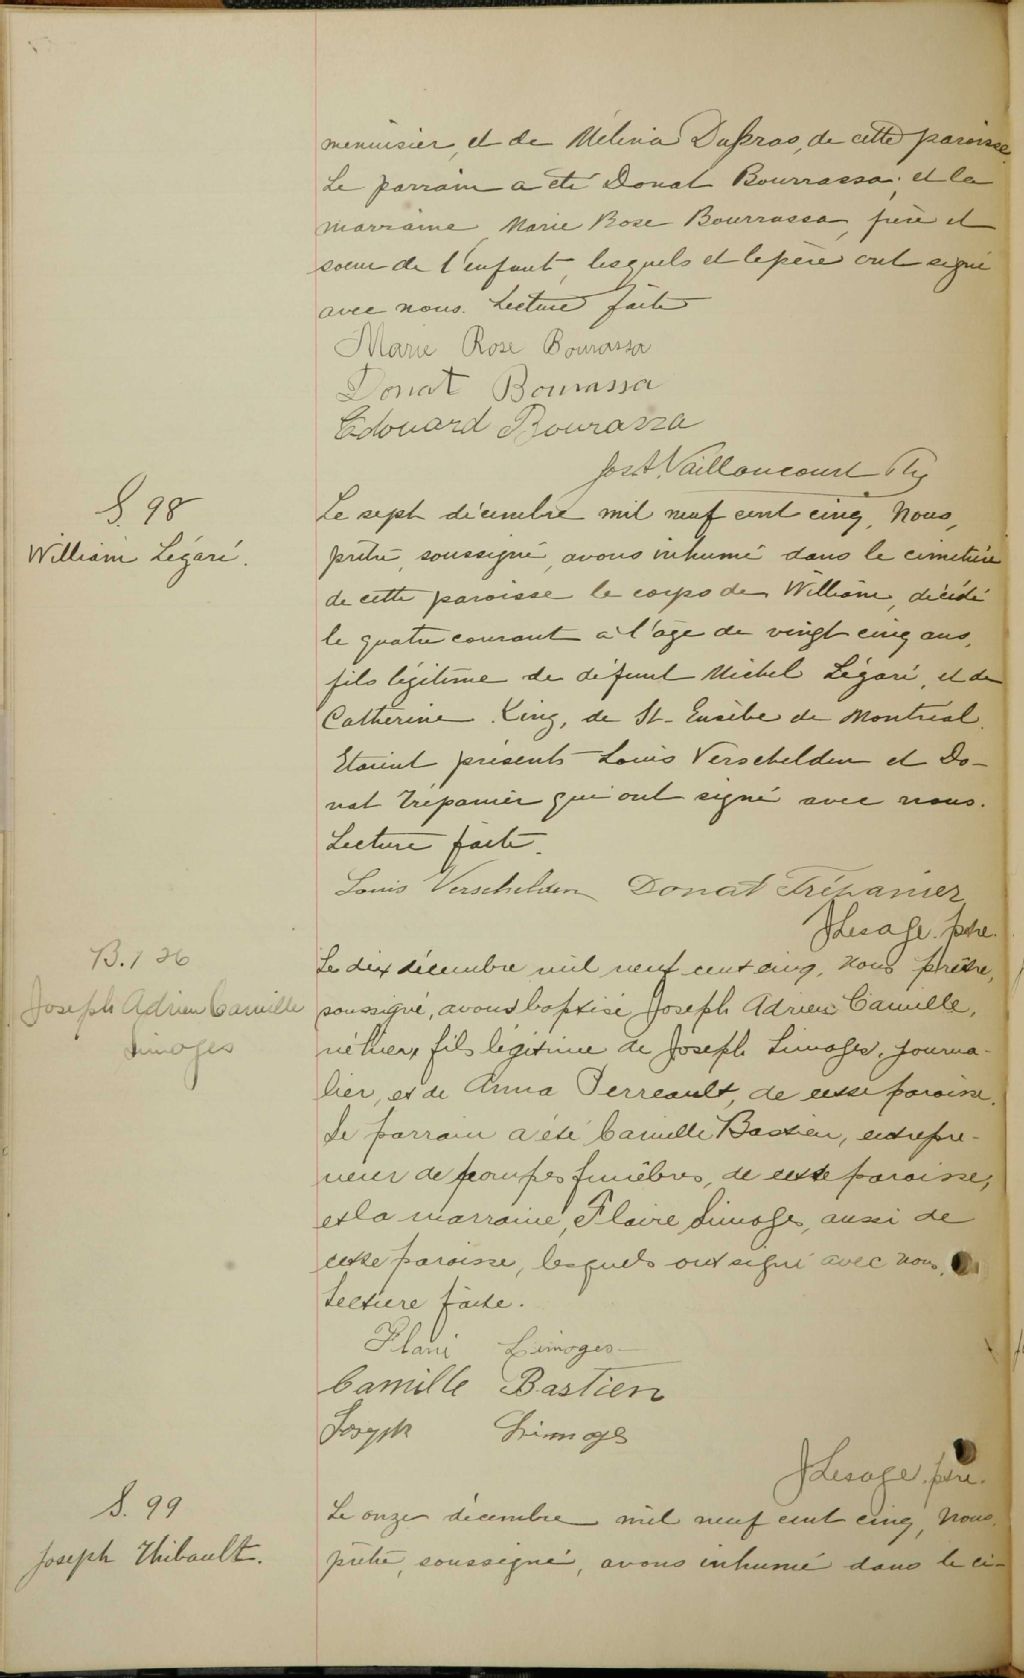 menuisier, et de Mélina Dupras, de cette paroisse.
Le parrain a été Donat Bourrassa, et la
marraine, Marie Rose Bourrassa, frère et
soeur de l'enfant, lesquels et le père ont signé
avec nous. Lecture faite
Marie Rose Bourassa
Donat Bourassa
Edouard Bourassa
Jos A. Vaillancourt Ptr
S. 98
William Légaré.
Le sept décembre mil neuf cent cinq, Nous,
prêtre, soussigné, avons inhumé dans le cimetière
de cette paroisse le corps de William, décédé
le quatre courant à l'âge de vingt cinq ans,
fils légitime de défunt Michel Légaré, et de
Catherine King, de St-Eusèbe de Montréal.
Etaient présents Louis Verschelden et Do-
nat Trépanier qui ont signé avec nous.
Lecture faite.
Louis Verschelden Donat Trépanier
J Lesage. ptre.
B. 126
Joseph Adrien Camille
Limoges
Le dix décembre mil neuf cent cinq, nous prêtre,
soussigné, avons baptisé Joseph Adrien Camille,
né hier, fils légitime de Joseph Limoges, journa-
lier, et de Anna Perreault, de cette paroisse.
Le parrain a été Camille Bastien, entrepre-
neur de pompes funèbres, de cette paroisse,
et la marraine, Flaire Limoges, aussi de
cette paroisse, lesquels ont signé avec nous.
Lecture faite.
Limoges
Camille Bastien
Joseph Limoges
J Lesage. ptre.
S. 99
Joseph Thibault.
Le onze décembre mil neuf cent cinq, Nous,
prêtre, soussigné, avons inhumé dans le ci-